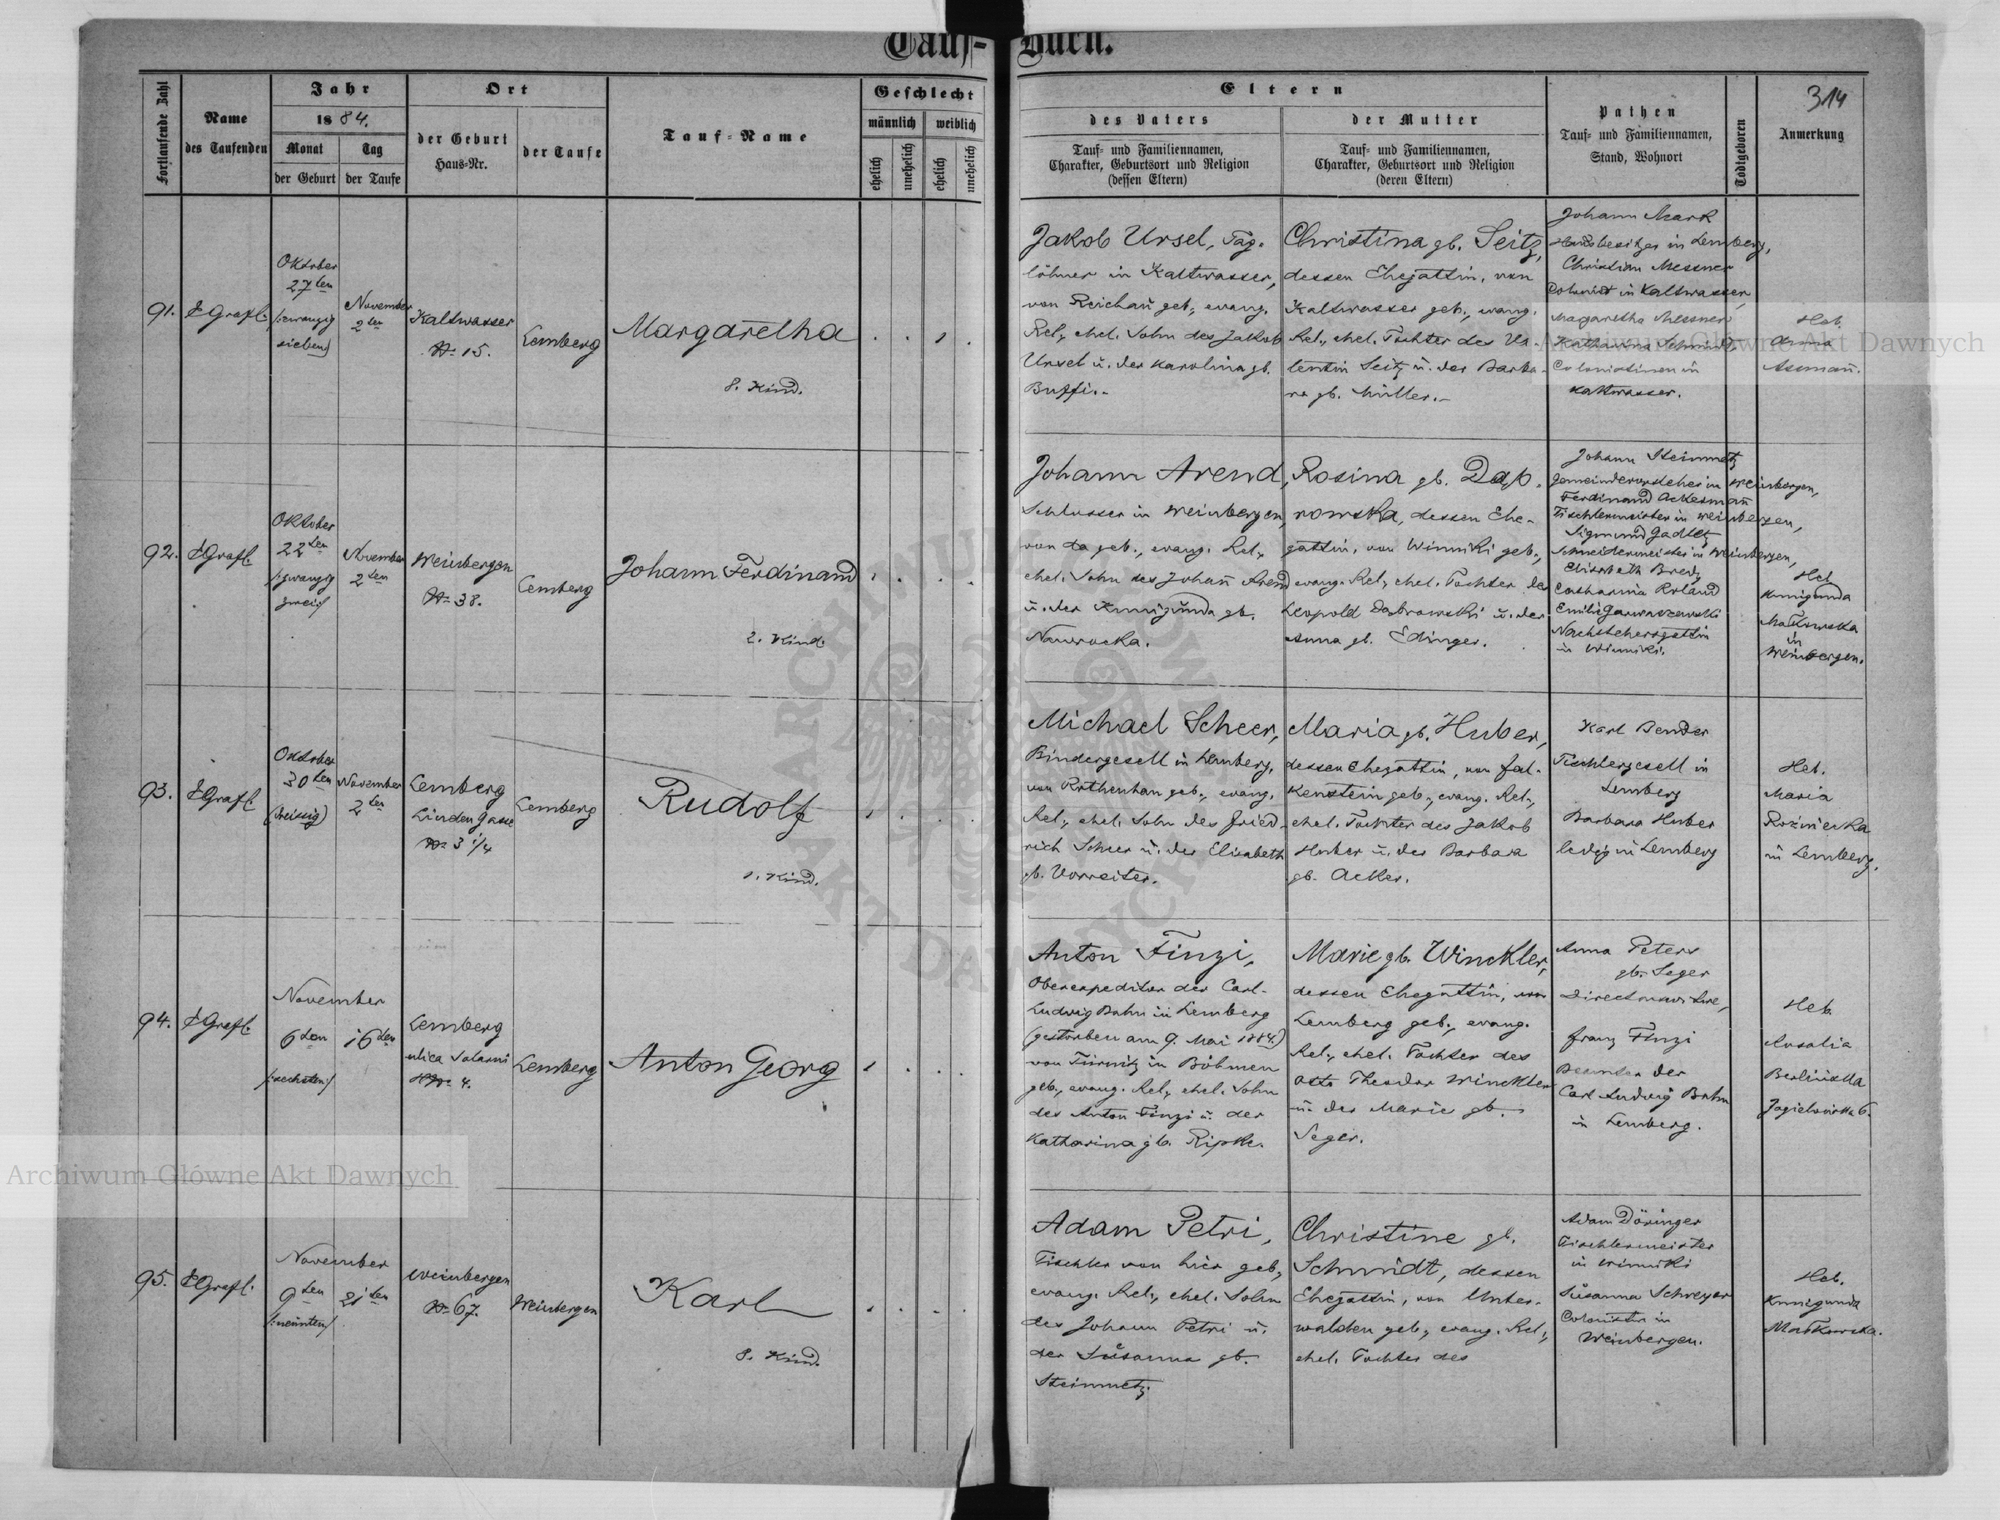 Tauf-Buch.
314
Fortlaufende Zahl
Name
des Taufenden
Jahr
1884.
Monat
Tag
der Geburt
der Taufe
Ort
der Geburt
Haus-Nr.
der Taufe
Tauf-Name
Geschlecht
männlich
weiblich
ehelich
unehelich
ehelich
unehelich
Eltern
des Vaters
Tauf- und Familiennamen,
Charakter, Geburtsort und Religion
(dessen Eltern)
der Mutter
Tauf- und Familiennamen,
Charakter, Geburtsort und Religion
(deren Eltern)
Pathen
Tauf- und Familiennamen,
Stand, Wohnort
Todtgeboren
Anmerkung
91.
Grafl.
Oktober
27ten
/:zwanzig
sieben/
November
2ten
Kaltwasser
N- 15.
Lemberg
Margaretha
8. Kind.
Jakob Ursel, Tag-
löhner in Kaltwasser,
von Reichau geb., evang.
Rel., ehel. Sohn des Jakob
Ursel u. der Karolina gb.
Buffi.-
Christina gb. Seitz,
dessen Ehegattin, von
Kaltwasser geb., evang.
Rel., ehel. Tochter des Va-
lentin Seitz u. der Barba-
ra gb. Müller.-
Johann Mark
Hausbesitzer in Lemberg,
Christian Messner
Colonist in Kaltwasser,
Magaretha Messner
Katharina Schmidt,
Colonistinen in
Kaltwasser.
Heb.
Anna
Assmañ.
92.
Grafl.
Oktober
22ten
/:zwanzig
zwei:/
November
2ten
Weinbergen
N- 38.
Lemberg
Johann Ferdinand
2. Kind.
Johann Arend,
Schlosser in Weinbergen,
von da geb., evang. Rel.,
ehel. Sohn des Johañ Arend
u. der Kunigunda gb.
Nawrocka.
Rosina gb. Dąb-
rowska, dessen Ehe-
gattin, von Winniki geb.,
evang. Rel., ehel. Tochter des
Leopold Dabrowski u. der
Anna gb. Edinger.
Johann Steinmetz
Gemeindevorsteher in Weinbergen,
Ferdinand Ackermañ
Tischlermeister in Weinbergen,
Sigmund Gadletz
Schneidermeister in Weinbergen,
Elisabeth Bredy
Catharina Roland
Emilie
in Winniki.
Heb.
Kunigunda
Matkowska
in
Weinbergen.
93.
Grafl.
Oktober
30ten
(dreissig)
November
2ten
Lemberg
Linden Gasse
N- 3 1/4
Lemberg
Rudolf
1. Kind.
Michael Scheer,
Bindergesell in Lemberg,
von Rothenhan geb., evang.
Rel., ehel. Sohn des Fried-
rich Scheer u. der Elisabeth
gb. Vorreiter.
Maria gb. Huber,
dessen Ehegattin, von Fal-
kenstein geb., evang. Rel.,
ehel. Tochter des Jakob
Huber u. der Barbara
gb. Acker.
Karl Bender
Tischlergesell in
Lemberg
Barbara Huber
ledig in Lemberg
Heb.
Maria
in Lemberg.
94.
Grafl.
November
6ten
16ten
/:sechsten:/
Lemberg
ulica Solarni
N- 4.
Lemberg
Anton Georg
Anton Finzi,
Oberexpeditor der Carl-
Ludwig Bahn in Lemberg
(gestorben am 9. Mai 1884.)
von Türmitz in Böhmen
geb., evang. Rel., ehel. Sohn
des Anton Finzi u. der
Katharina gb. Ripke.
Marie gb. Winckler,
dessen Ehegattin, von
Lemberg geb., evang.
Rel., ehel. Tochter des
Otto Theodor Winckler
u. der Marie gb.
Seger.
Anna Peters
gb. Seger
Directorswitwe,
Franz Finzi
Beamter der
Carl Ludwig Bahn
in Lemberg.
Heb.
Rosalia
Berlińska
Jagielońska 6.
95.
Grafl.
November
9ten
21ten
/:neunten/
Weinbergen
N- 67.
Weinbergen
Karl
8. Kind.
Adam Petri,
Tischler von hier geb.,
evang. Rel., ehel. Sohn
des Johann Petri u.
der Susanna gb.
Steinmetz.
Christine gb.
Schmidt, dessen
Ehegattin, von Unter-
walden geb., evang. Rel.,
ehel. Tochter des
Adam Döringer
Tischlermeister
in Winniki
Susanna Schweyer
Colonistin in
Weinbergen.
Heb.
Kunigunda
Matkowska.
Archiwum Główne Akt Dawnych
Archiwum Główne Akt Dawnych
ARCHIWUM GŁÓWNE AKT DAWNYCH